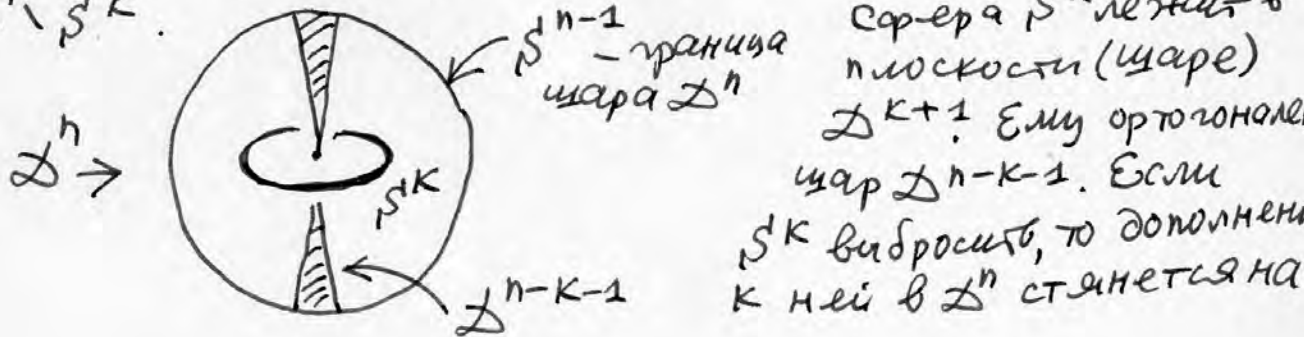 \ S^k.
S^{n-1} – граница
шара D^n
D^n →
S^k
D^{n-k-1}
сфера S^k лежит в
плоскости (шаре)
D^{k+1}. Ему ортогонален
шар D^{n-k-1}. Если
S^k выбросить, то дополнение
к ней в D^n стянется на